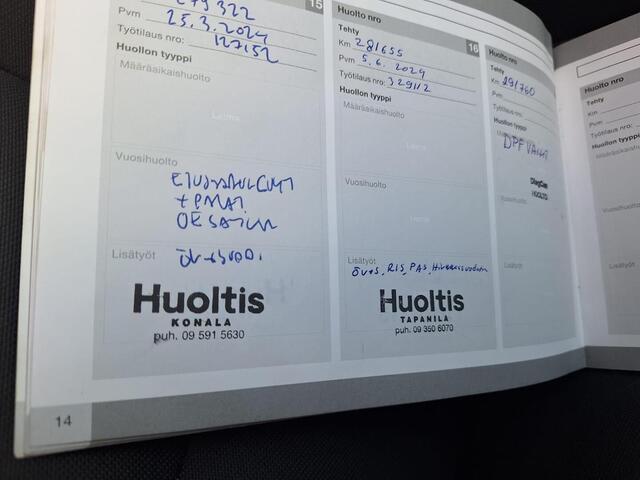 15
279322
Pvm 25.3.2024
Työtilaus nro: 127152
Huollon tyyppi
Määräaikaishuolto
Leima
Vuosihuolto
Lisätyöt
Huoltis
KONALA
puh. 09 591 5630
14
Huolto nro
16
Tehty
Km 281655
Pvm 5.6.2024
Työtilaus nro: 329112
Huollon tyyppi
Määräaikaishuolto
Leima
Vuosihuolto
Lisätyöt
Huoltis
TAPANILA
puh. 09 350 6070
Huolto nro
Tehty
Km 291760
Pvm
Työtilaus nro:
Huollon tyyppi
DPF
HUOLTO
Vuosihuolto
Lisätyöt
Huolto nro
Tehty
Km
Pvm
Työtilaus nro:
Huollon tyyppi
Määräaikaishuolto
Vuosihuolto
Lisätyöt